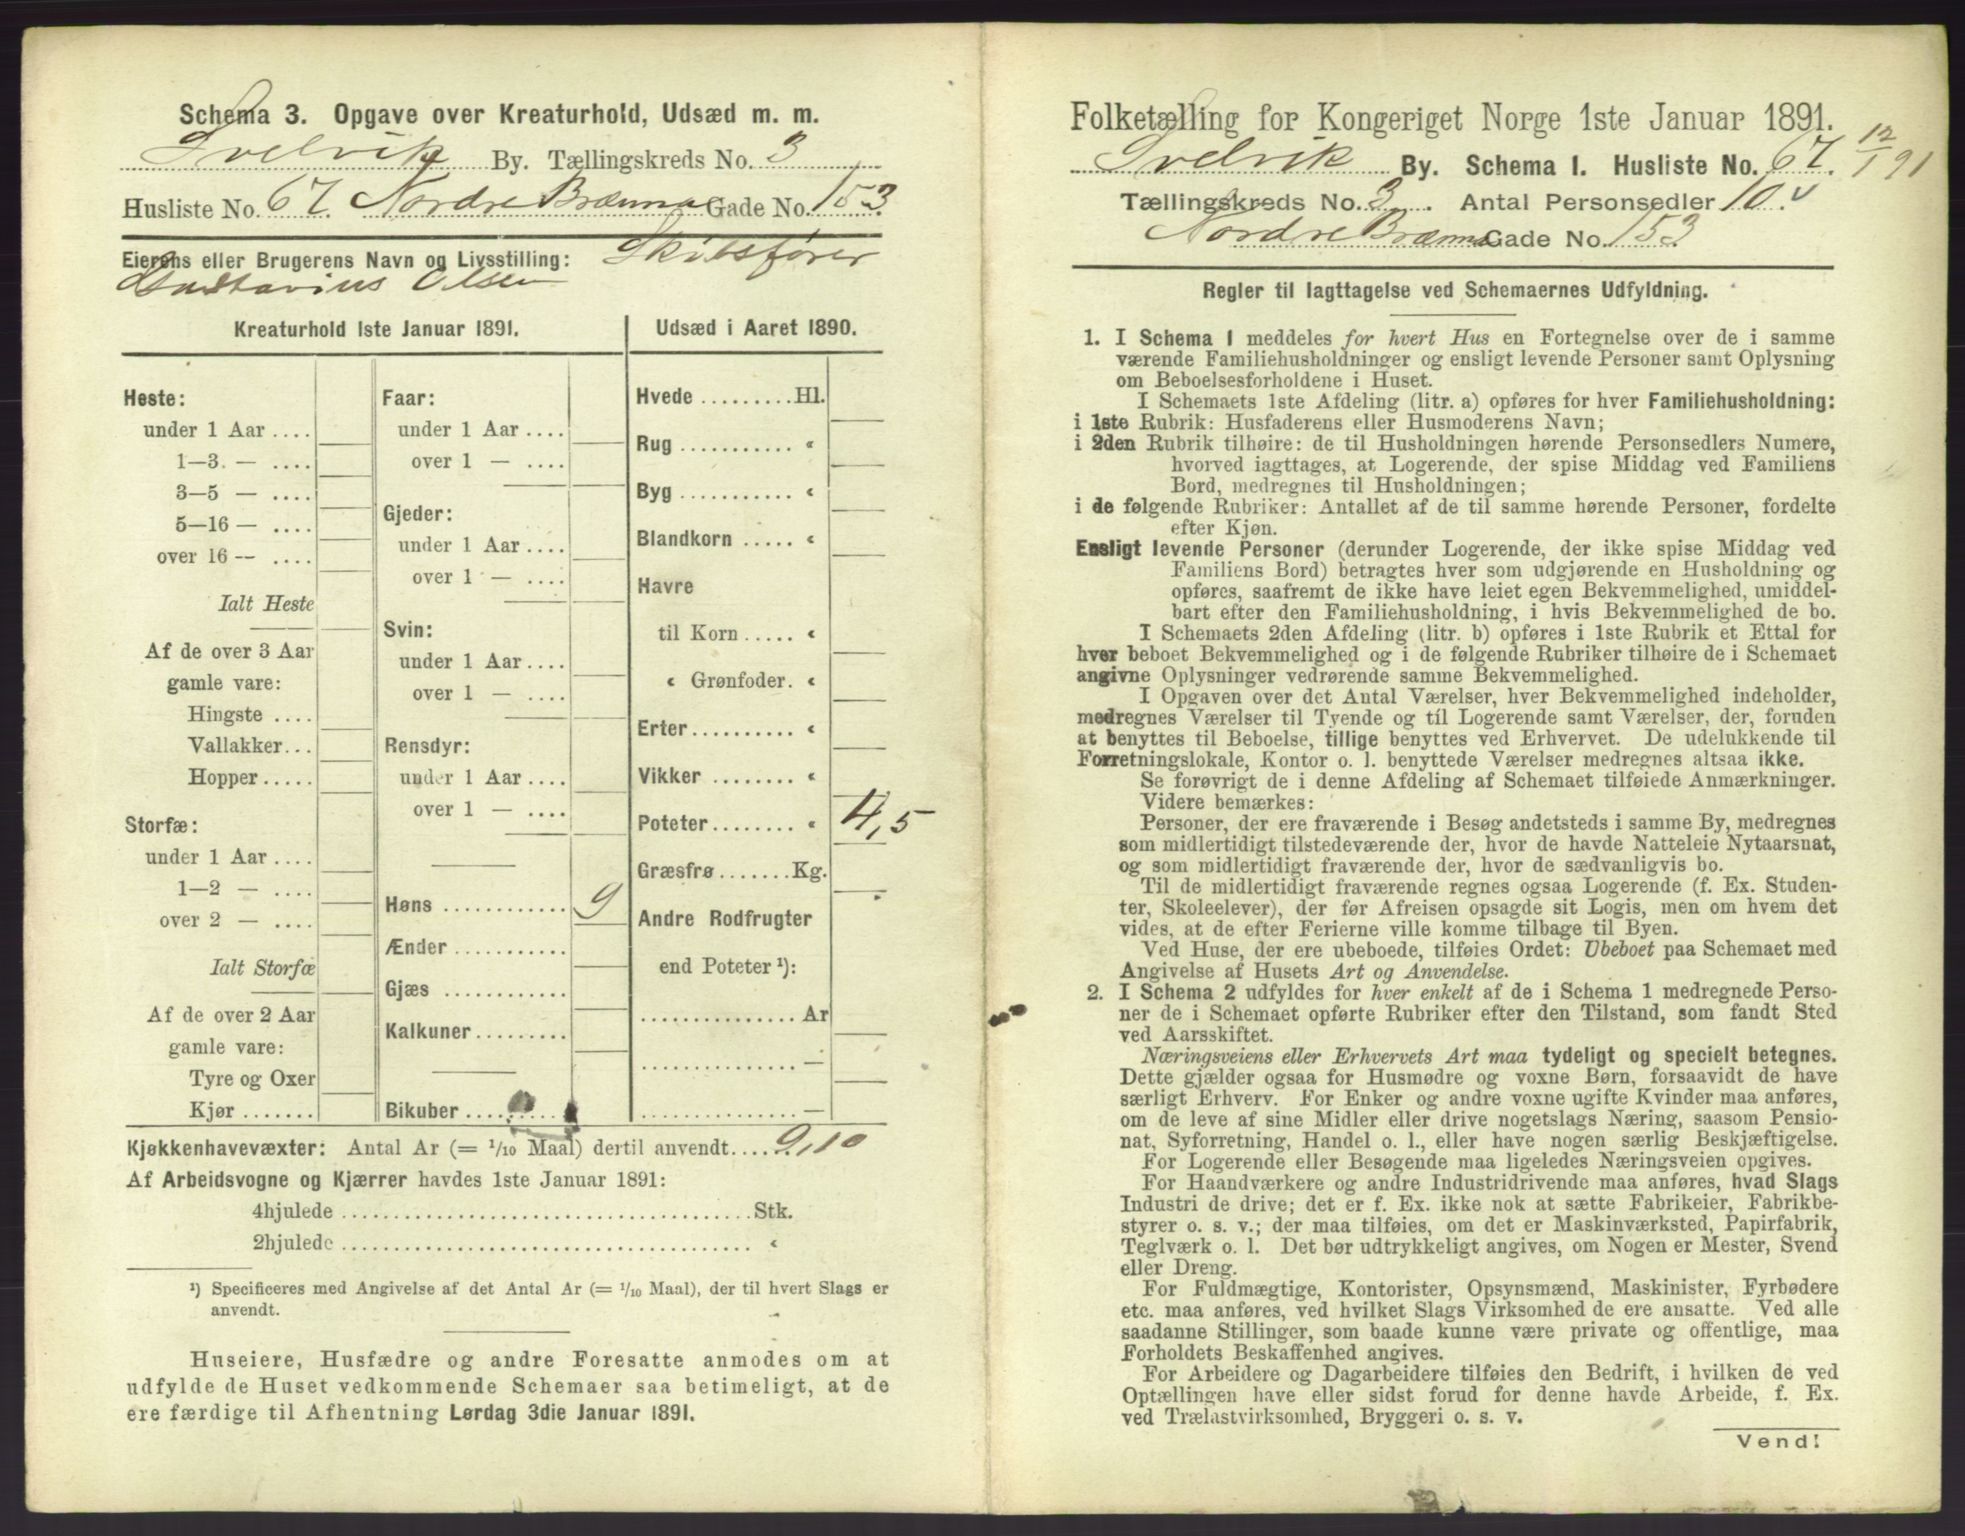 Schema 3. Opgave over Kreaturhold, Udsæd m. m.
Svelvik By. Tællingskreds No. 3
Husliste No. 67. Nordre Brænna Gade No. 153
Eierens eller Brugerens Navn og Livsstilling: Skibsfører
Gustavius Olsen
Kreaturhold 1ste Januar 1891.
Heste:
under 1 Aar ....
1—3. — ....
3—5 — ....
5—16 — ....
over 16 — ....
Ialt Heste
Af de over 3 Aar
gamle vare:
Hingste ....
Vallakker...
Hopper.....
Storfæ:
under 1 Aar ....
1—2 — ....
over 2 — ....
Ialt Storfæ
Af de over 2 Aar
gamle vare:
Tyre og Oxer
Kjør .......
Faar:
under 1 Aar ....
over 1 — ....
Gjeder:
under 1 Aar ....
over 1 — ....
Svin:
under 1 Aar ....
over 1 — ....
Rensdyr:
under 1 Aar ....
over 1 — ....
Høns ............ 9
Ænder ...........
Gjæs ............
Kalkuner.........
Bikuber ..........
Udsæd i Aaret 1890.
Hvede .........Hl.
Rug ........... «
Byg ........... «
Blandkorn ..... «
Havre
til Korn ..... «
« Grønfoder. «
Erter.......... «
Vikker ........ «
Poteter........ « 4,5
Græsfrø.......Kg.
Andre Rodfrugter
end Poteter ¹):
............... Ar
............... —
............... —
Kjøkkenhavevæxter: Antal Ar (= 1/10 Maal) dertil anvendt.... 0,10
Af Arbeidsvogne og Kjærrer havdes 1ste Januar 1891:
4hjulede ......................................Stk.
2hjulede ...................................... «
¹) Specificeres med Angivelse af det Antal Ar (= 1/10 Maal), der til hvert Slags er
anvendt.
Huseiere, Husfædre og andre Foresatte anmodes om at
udfylde de Huset vedkommende Schemaer saa betimeligt, at de
ere færdige til Afhentning Lørdag 3die Januar 1891.
Folketælling for Kongeriget Norge 1ste Januar 1891.
Svelvik By. Schema 1. Husliste No. 67. 12/1 91
Tællingskreds No. 3. Antal Personsedler 10.
Nordre Brænna Gade No. 153
Regler til Iagttagelse ved Schemaernes Udfyldning.
1. I Schema 1 meddeles for hvert Hus en Fortegnelse over de i samme
værende Familiehusholdninger og ensligt levende Personer samt Oplysning
om Beboelsesforholdene i Huset.
I Schemaets 1ste Afdeling (litr. a) opføres for hver Familiehusholdning:
i 1ste Rubrik: Husfaderens eller Husmoderens Navn;
i 2den Rubrik tilhøire: de til Husholdningen hørende Personsedlers Numere,
hvorved iagttages, at Logerende, der spise Middag ved Familiens
Bord, medregnes til Husholdningen;
i de følgende Rubriker: Antallet af de til samme hørende Personer, fordelte
efter Kjøn.
Ensligt levende Personer (derunder Logerende, der ikke spise Middag ved
Familiens Bord) betragtes hver som udgjørende en Husholdning og
opføres, saafremt de ikke have leiet egen Bekvemmelighed, umiddel-
bart efter den Familiehusholdning, i hvis Bekvemmelighed de bo.
I Schemaets 2den Afdeling (litr. b) opføres i 1ste Rubrik et Ettal for
hver beboet Bekvemmelighed og i de følgende Rubriker tilhøire de i Schemaet
angivne Oplysninger vedrørende samme Bekvemmelighed.
I Opgaven over det Antal Værelser, hver Bekvemmelighed indeholder,
medregnes Værelser til Tyende og til Logerende samt Værelser, der, foruden
at benyttes til Beboelse, tillige benyttes ved Erhvervet. De udelukkende til
Forretningslokale, Kontor o. l. benyttede Værelser medregnes altsaa ikke.
Se forøvrigt de i denne Afdeling af Schemaet tilføiede Anmærkninger.
Videre bemærkes:
Personer, der ere fraværende i Besøg andetsteds i samme By, medregnes
som midlertidigt tilstedeværende der, hvor de havde Natteleie Nytaarsnat,
og som midlertidigt fraværende der, hvor de sædvanligvis bo.
Til de midlertidigt fraværende regnes ogsaa Logerende (f. Ex. Studen-
ter, Skoleelever), der før Afreisen opsagde sit Logis, men om hvem det
vides, at de efter Ferierne ville komme tilbage til Byen.
Ved Huse, der ere ubeboede, tilføies Ordet: Ubeboet paa Schemaet med
Angivelse af Husets Art og Anvendelse.
2. I Schema 2 udfyldes for hver enkelt af de i Schema 1 medregnede Perso-
ner de i Schemaet opførte Rubriker efter den Tilstand, som fandt Sted
ved Aarsskiftet.
Næringsveiens eller Erhvervets Art maa tydeligt og specielt betegnes.
Dette gjælder ogsaa for Husmødre og voxne Børn, forsaavidt de have
særligt Erhverv. For Enker og andre voxne ugifte Kvinder maa anføres,
om de leve af sine Midler eller drive nogetslags Næring, saasom Pensio-
nat, Syforretning, Handel o. l., eller have nogen særlig Beskjæftigelse.
For Logerende eller Besøgende maa ligeledes Næringsveien opgives.
For Haandværkere og andre Industridrivende maa anføres, hvad Slags
Industri de drive; det er f. Ex. ikke nok at sætte Fabrikeier, Fabrikbe-
styrer o. s. v.; der maa tilføies, om det er Maskinværksted, Papirfabrik,
Teglværk o. l. Det bør udtrykkeligt angives, om Nogen er Mester, Svend
eller Dreng.
For Fuldmægtige, Kontorister, Opsynsmænd, Maskinister, Fyrbødere
etc. maa anføres, ved hvilket Slags Virksomhed de ere ansatte. Ved alle
saadanne Stillinger, som baade kunne være private og offentlige, maa
Forholdets Beskaffenhed angives.
For Arbeidere og Dagarbeidere tilføies den Bedrift, i hvilken de ved
Optællingen have eller sidst forud for denne havde Arbeide, f. Ex.
ved Trælastvirksomhed, Bryggeri o. s. v.
Vend!